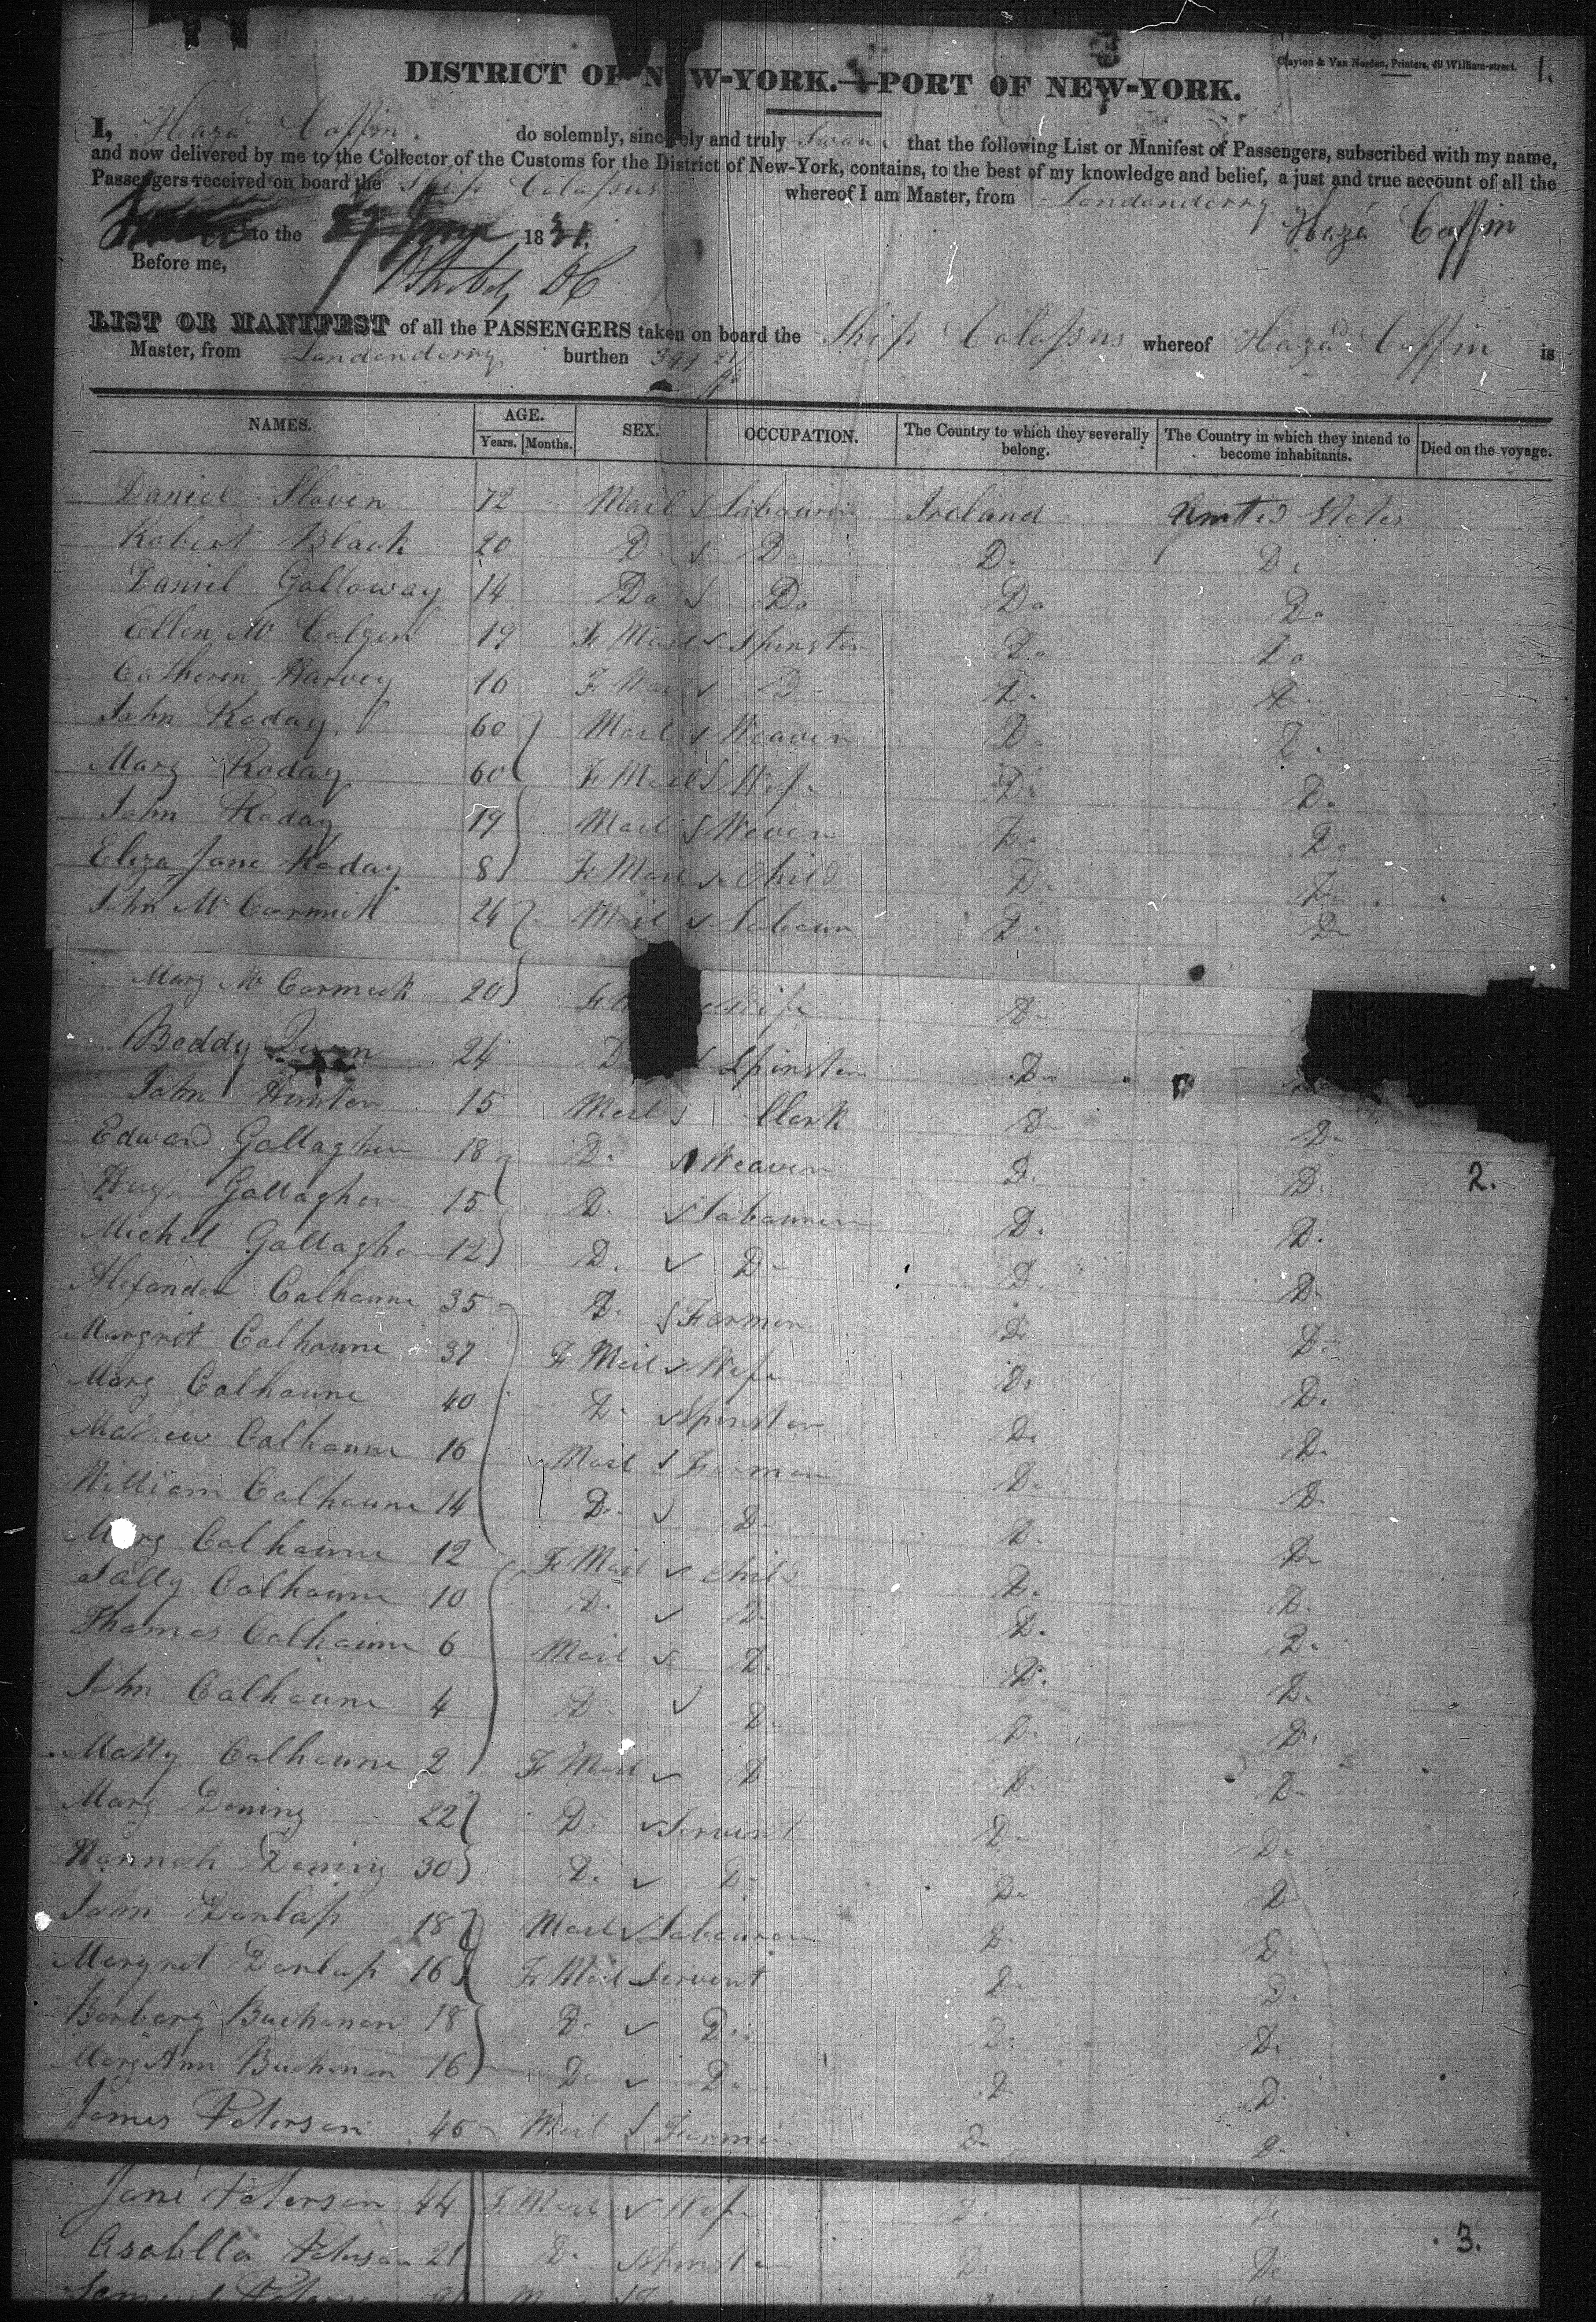 Clayton & Van Norden, Printers, 42 William-street.
1.
DISTRICT OF NEW-YORK.—PORT OF NEW-YORK.
I, Haza Coffin do solemnly, sincerely and truly Swear that the following List or Manifest of Passengers, subscribed with my name,
and now delivered by me to the Collector of the Customs for the District of New-York, contains, to the best of my knowledge and belief, a just and true account of all the
Passengers received on board the Ship Colossus whereof I am Master, from Londonderry
to the 27 June 1831. Haza Coffin
Before me,
LIST OR MANIFEST of all the PASSENGERS taken on board the Ship Colossus whereof Haza Coffin is
Master, from Londonderry burthen 399
NAMES. AGE. Years. Months. SEX. OCCUPATION. The Country to which they severally belong. The Country in which they intend to become inhabitants. Died on the voyage.
Daniel Slaven 72 Mail Labourer Ireland United States
Robert Black 20 Do Do Do Do
Daniel Galloway 14 Do Do Do Do
Ellen Mc Colgen 19 Fe Mail Spinster Do Do
Catheren Harvey 16 Fe Mail Do Do Do
John Roday 60 Mail Weaver Do Do
Mary Roday 60 Fe Mail Wife Do Do
John Roday 19 Mail Wever Do Do
Eliza Jane Roday 8 Fe Mail Child Do Do
John Mc Cormick 24 Mail Labour Do Do
Mary Mc Cormick 20 Wife Do
Beddy 24 D Spinster Do
John Hunter 15 Mail Clark Do Do
Edward Gallagher 18 Do Weaver Do Do
Gallagher 15 Do Labourer Do Do
Michel Gallagher 12 Do Do Do Do 2.
Alexander Calhoune 35 Do Farmer Do Do
Margret Calhoune 37 Fe Mail Wife Do Do
Mary Calhoune 40 Do Spinster Do Do
Mathew Calhoune 16 Mail Farmer Do Do
William Calhoune 14 Do Do Do Do
Mary Calhoune 12 Fe Mail Child Do Do
Sally Calhoune 10 Do Do Do Do
Thomas Calhoune 6 Mail Do Do Do
John Calhoune 4 Do Do Do Do
Matty Calhoune 2 Fe Mail Do Do Do
Mary Dening 22 Do Servint Do Do
Hannah Dening 30 Do Do Do Do
John Dunlap 18 Mail Labourer Do Do
Margret Dunlap 16 Fe Mail Servent Do Do
Barbary Buchanan 18 Do Do Do Do
Mary Ann Buchanan 16 Do Do Do Do
James Peterson 45 Mail Farmer Do Do
Jane Peterson 44 Fe Mail Wife Do Do
Asabella Peterson 21 Do Spinster Do Do
3.
Samuel Peterson